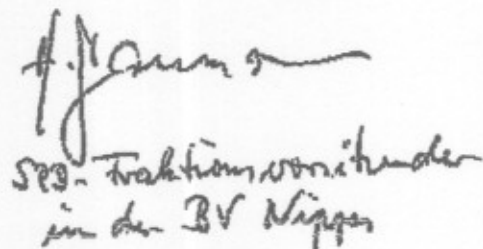 SPD-Fraktionsvorsitzender
in der BV Nippes